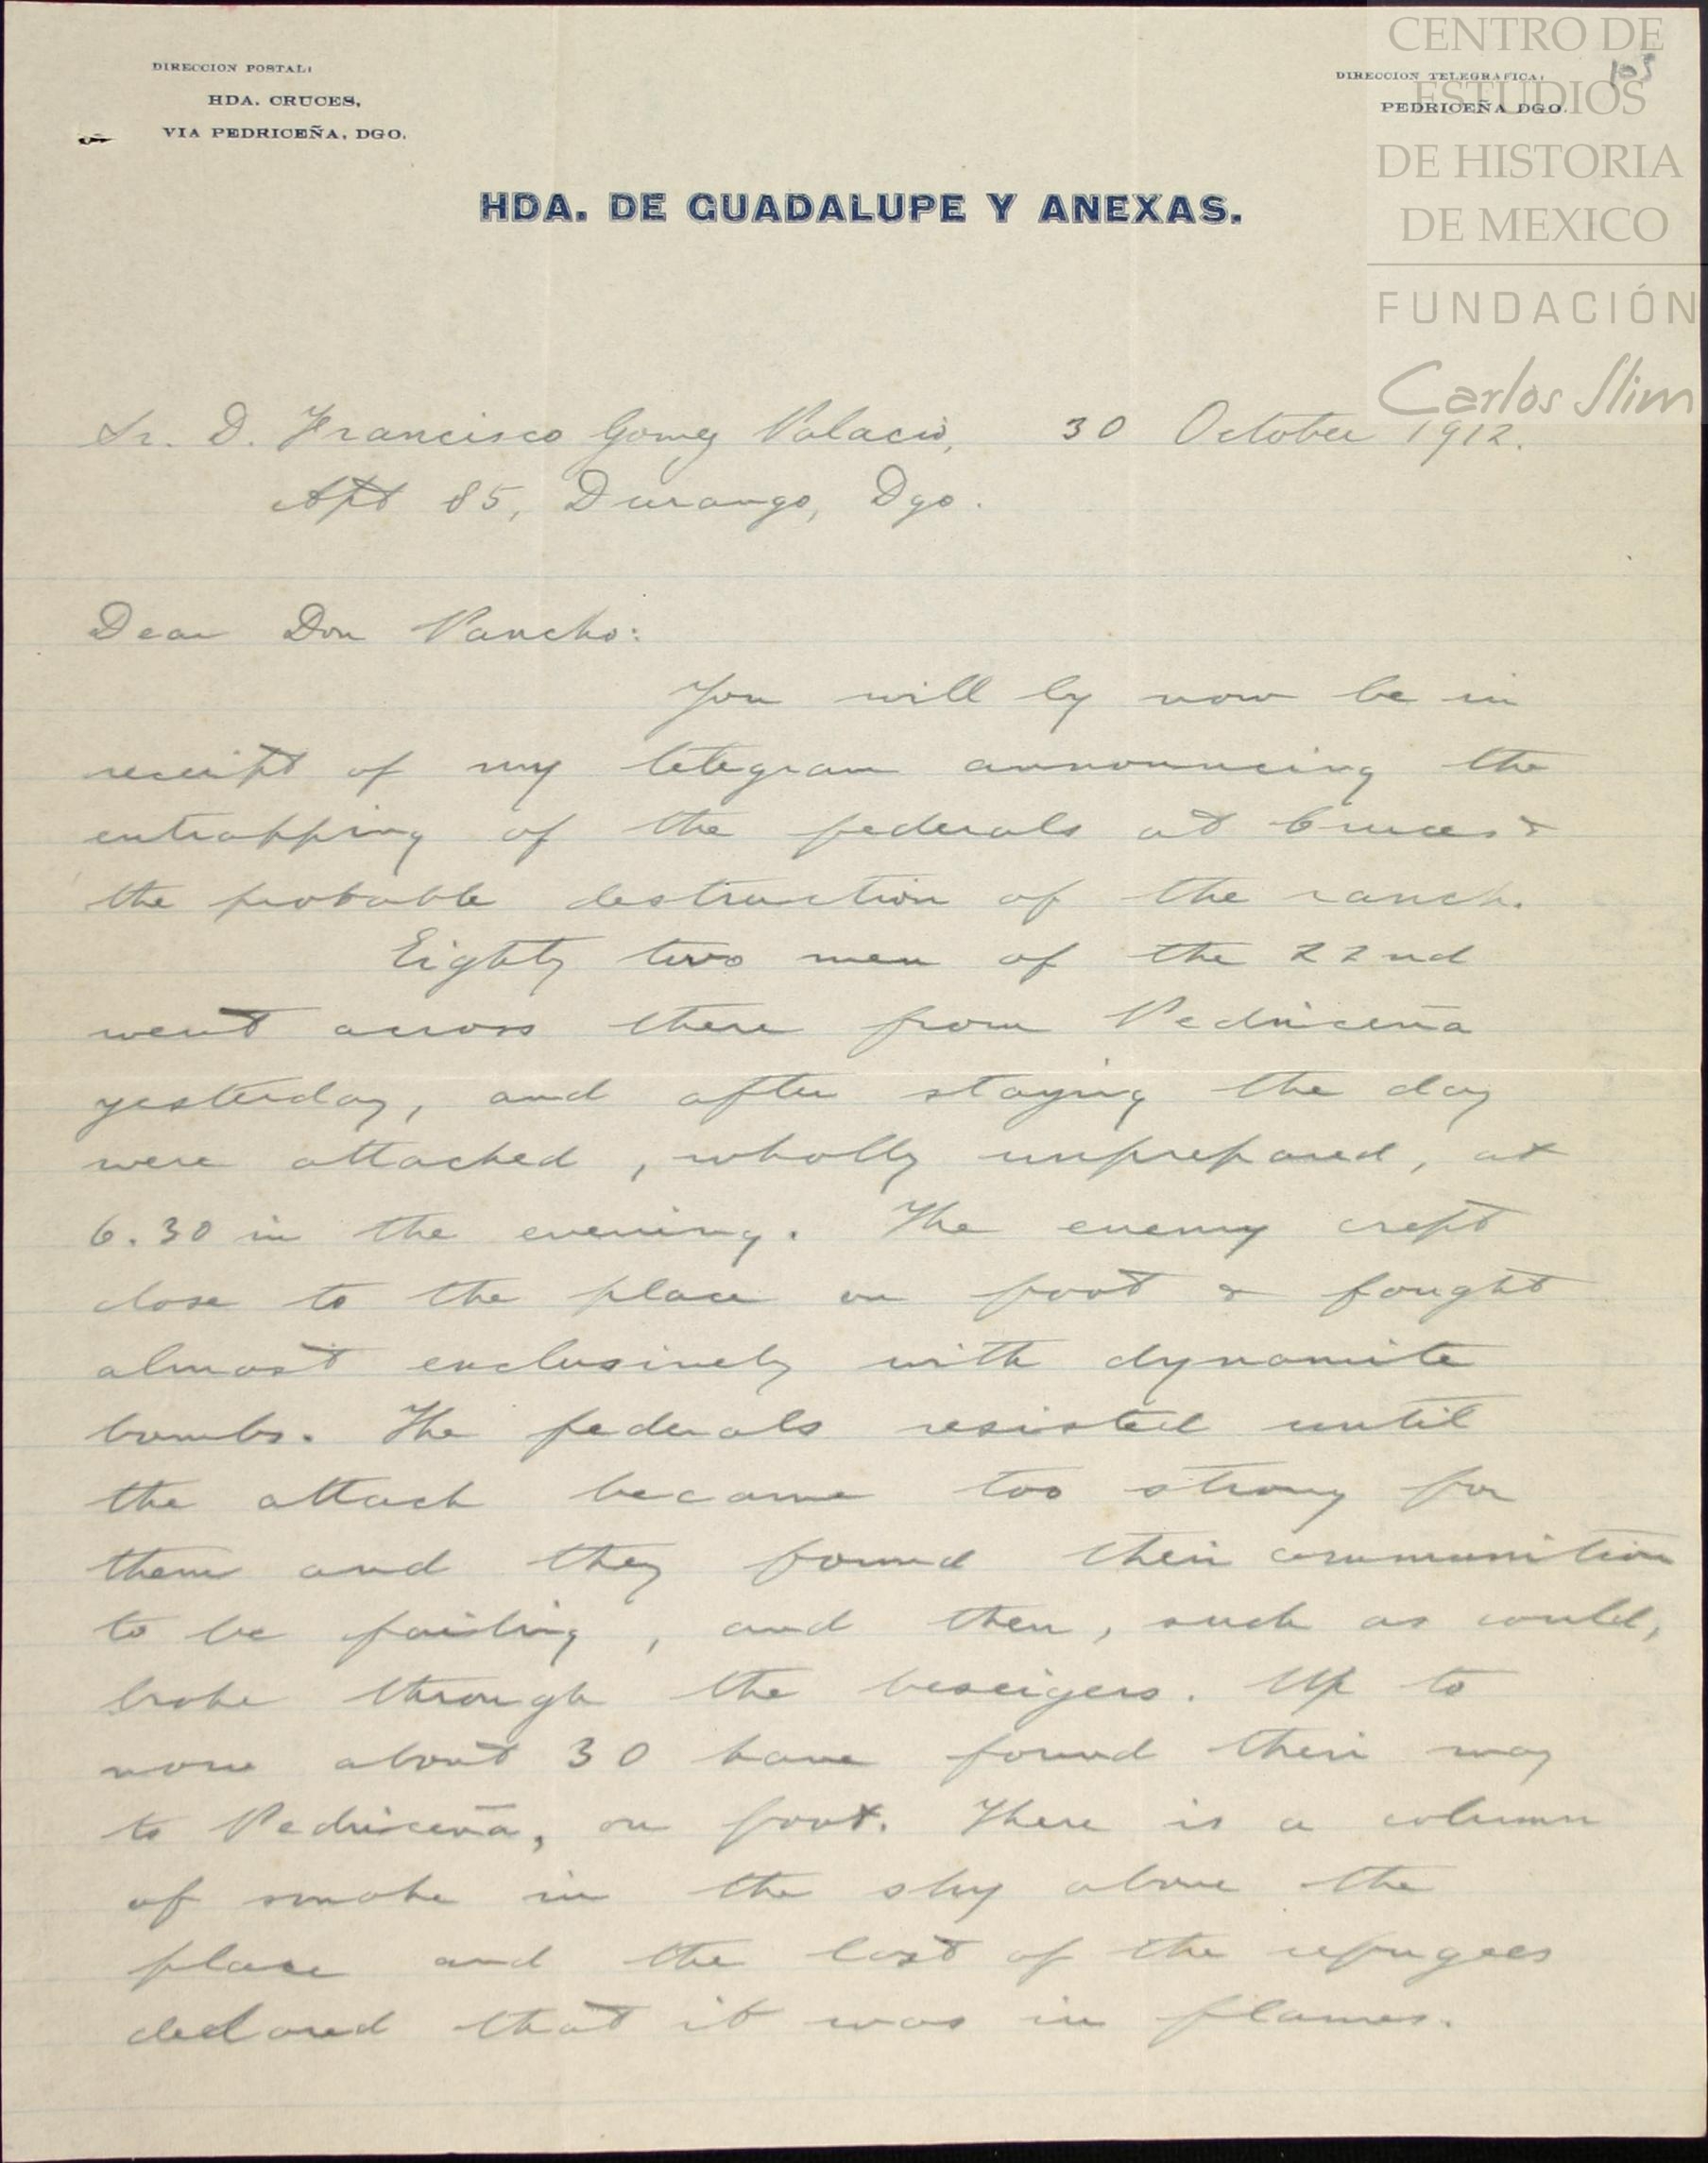 DIRECCION POSTAL:
HDA. CRUCES,
VIA PEDRICEÑA, DGO.
DIRECCION TELEGRAFICA:
PEDRICEÑA DGO.
105
CENTRO DE
ESTUDIOS
DE HISTORIA
DE MEXICO
FUNDACIÓN
Carlos Slim
HDA. DE GUADALUPE Y ANEXAS.
Sr. D. Francisco Gomez Palacio, 30 October 1912.
Apt 85, Durango, Dgo.
Dear Don Pancho:
You will by now be in
receipt of my telegram announcing the
entrapping of the federals at Cruces &
the probable destruction of the ranch.
Eighty two men of the 22nd
went across there from Pedriceña
yesterday, and after staying the day
were attacked, wholly unprepared, at
6.30 in the evening. The enemy crept
close to the place on foot & fought
almost exclusively with dynamite
bombs. The federals resisted until
the attack became too strong for
them and they found their ammunition
to be failing, and then, such as could,
broke through the beseigers. Up to
now about 30 have found their way
to Pedriceña, on foot. There is a column
of smoke in the sky above the
place and the last of the refugees
declared that it was in flames.